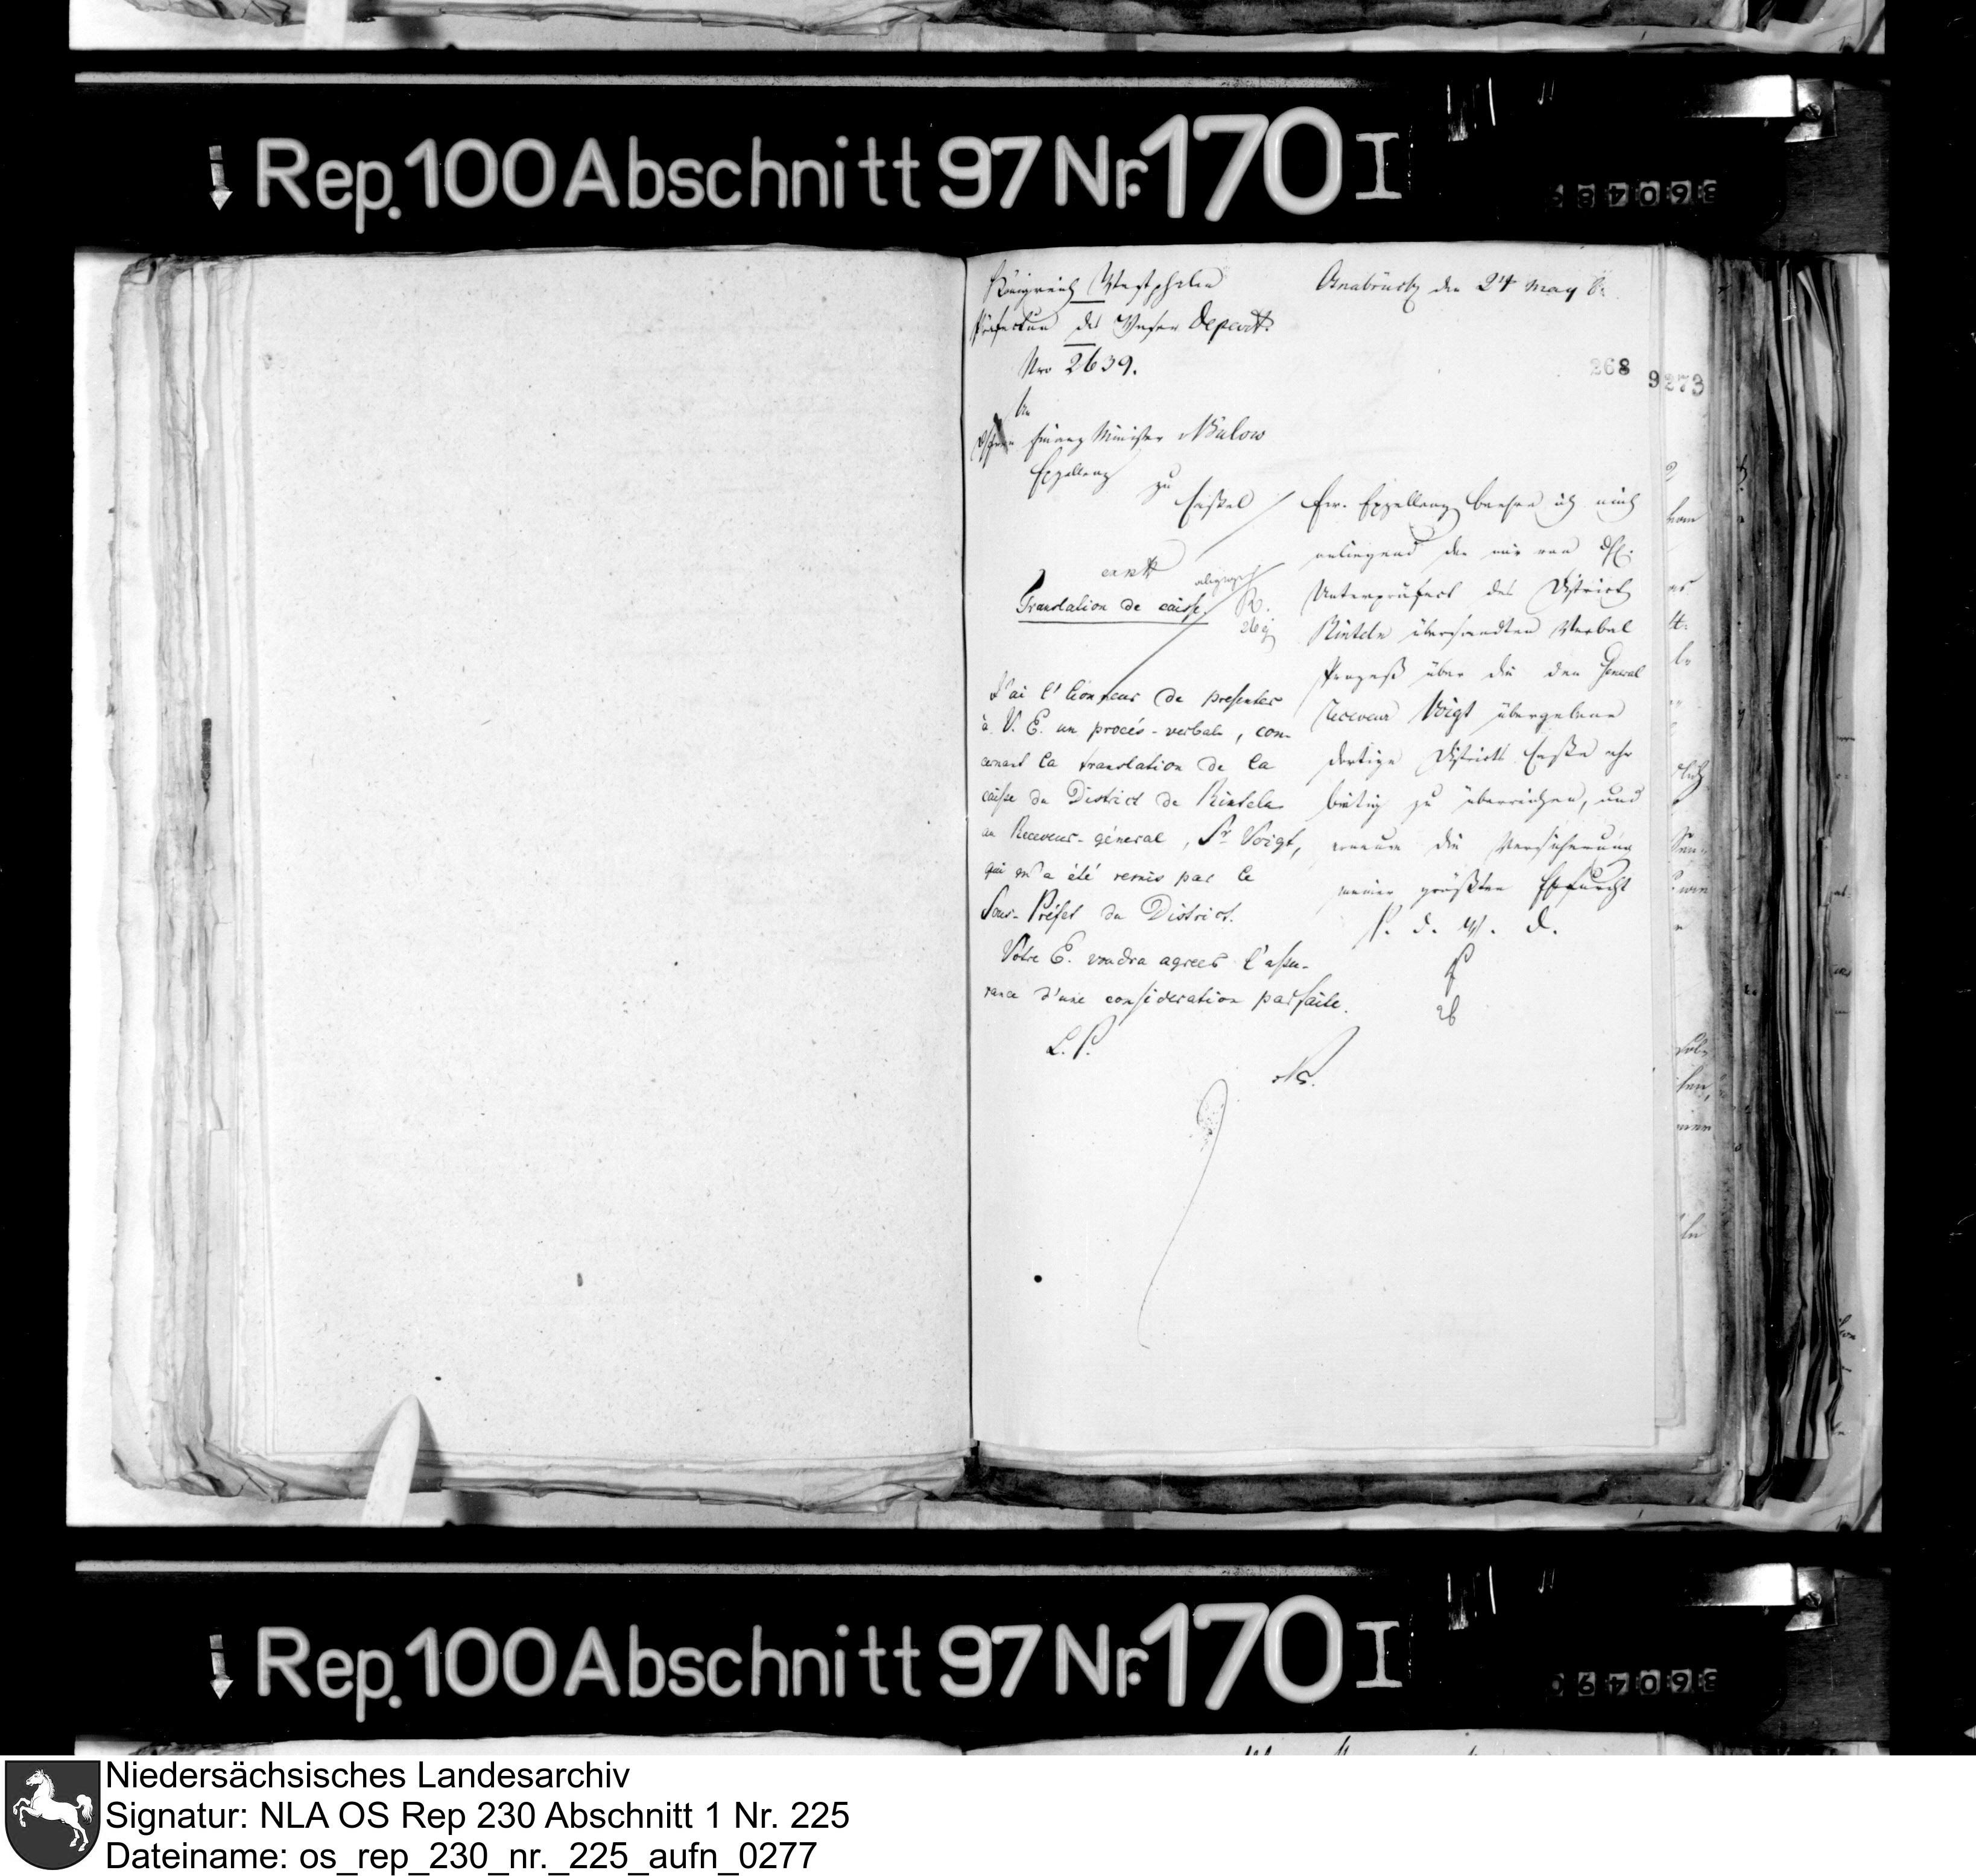 Rep. 100 Abschnitt 97 Nr. 170 I
Königreich Westphalen
Osnabrück den 24 May
Präfectur des Weser Depart.
Nro 2639.
268
9 273
An
Finanz Minister Bülow
Exzellenz zu
Cassel
Translation de caisse
abgesagt
Ew. Exzellenz beehre ich mich
anliegend den mir von
Unterpräfect des Districts
Rinteln übersandten Verbal
Prozeß über die den General
Receveur Voigt übergebene
dortige Districts Casse ehr
bietig zu überreichen, und
erneure die Versicherung
meiner größten Ehrfurcht
P. d. W. D.
J'ai l'honneur de presenter
à V. E. un procés-verbale, con-
cernant la translation de la
caisse du District de Rinteln
au Receveur-géneral, Sr. Voigt,
qui m'a été remis par le
Sous-Préfet du District.
Votre E. voudra agreer l'assu-
rance d'une consideration parfaite.
L. P.
Rep. 100 Abschnitt 97 Nr. 170 I
Niedersächsisches Landesarchiv
Signatur: NLA OS Rep 230 Abschnitt 1 Nr. 225
Dateiname: os_rep_230_nr._225_aufn_0277